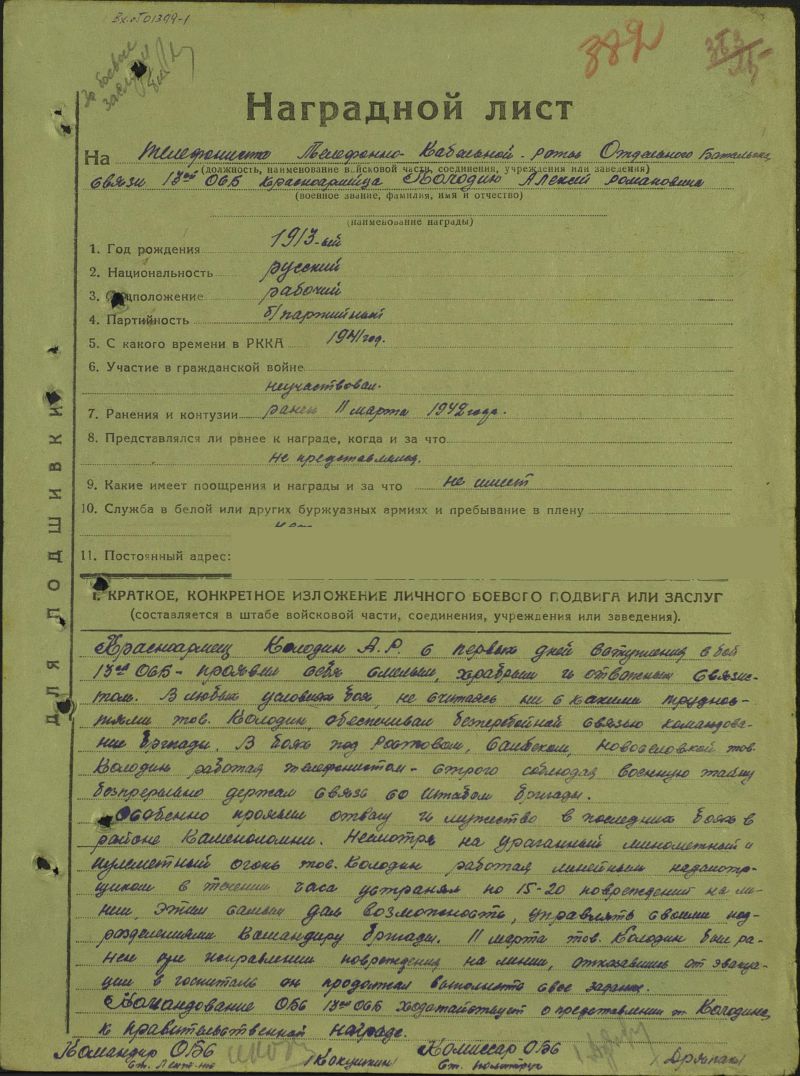 Вх. об 01399-1
За боевые
заслуги
382
353
Наградной лист
На телефониста Телефонно-Кабельной роты Отдельного Батальона
(должность, наименование войсковой части, соединения, учреждения или заведения)
связи 13ой ОСБ Красноармейца Колодин Алексей Романовича
(военное звание, фамилия, имя и отчество)
(наименование награды)
1. Год рождения 1913-ый
2. Национальность русский
3. Соцположение рабочий
4. Партийность б/партийный
5. С какого времени в РККА 1941 год.
6. Участие в гражданской войне
неучаствовал.
7. Ранения и контузии ранен 11 марта 1942 года.
8. Представлялся ли ранее к награде, когда и за что
не представлялся.
9. Какие имеет поощрения и награды и за что не имеет
10. Служба в белой или других буржуазных армиях и пребывание в плену
11. Постоянный адрес:
ДЛЯ ПОДШИВКИ
I. КРАТКОЕ, КОНКРЕТНОЕ ИЗЛОЖЕНИЕ ЛИЧНОГО БОЕВОГО ПОДВИГА ИЛИ ЗАСЛУГ
(составляется в штабе войсковой части, соединения, учреждения или заведения).
Красноармеец Колодин А.Р. с первых дней вступления в бой
13ой ОСБ - проявил себя смелым, храбрым и отважным связис-
том. В любых условиях боя, не считаясь ни с какими труднос-
тями тов. Колодин, обеспечивал бесперебойной связью командова-
ние бригады. В боях под Ростовом, Самбеком, Новоселовкой тов.
Колодин работая телефонистом - строго соблюдая военную тайну
безпрерывно держал связь со штабом бригады.
Особенно проявил отвагу и мужество в последних боях в
районе Каменоломни. Несмотря на ураганный минометный и
пулеметный огонь тов. Колодин работая линейным надсмотр-
щиком в течении часа устранял по 15-20 повреждений на ли-
нии, этим самым дал возможность, управлять своими под-
разделениями Командиру бригады. 11 марта тов. Колодин был ра-
нен при исправлении повреждения на линии, отказавшись от эвакуа-
ции в госпиталь он продолжал выполнять свое задание.
Командование ОБС 13ой ОСБ ходатайствует о представлении т. Колодина,
к правительственной награде.
Командир ОБС Комиссар ОБС
Ст. Лейт-нт /Кокушкин/ Ст. политрук /Дряпак/